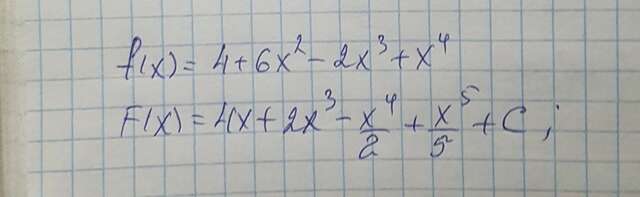 f(x) = 4 + 6x² - 2x³ + x⁴
F(x) = 4x + 2x³ - x⁴/2 + x⁵/5 + C ;